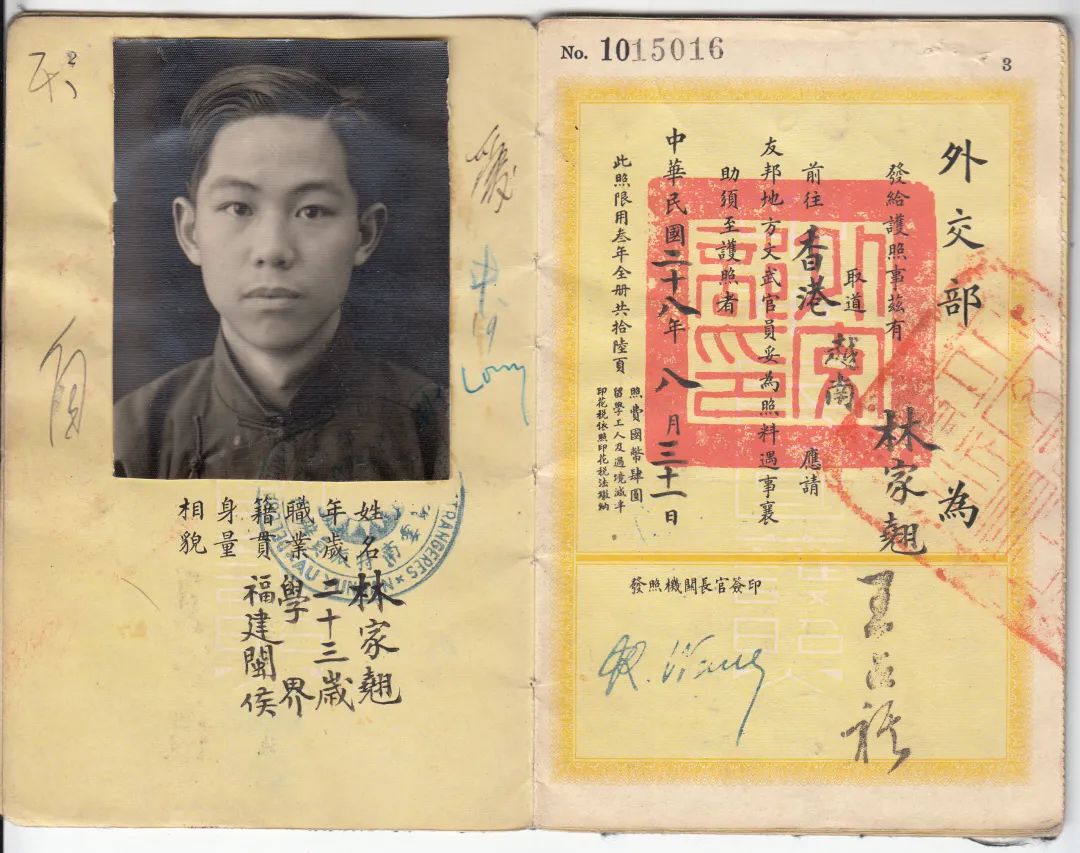 姓名 林家翹
年歲 二十三歲
職業 學界
籍貫 福建閩侯
身量
相貌
TRANGERES
AU YUNNAN
No. 1015016
3
外交部 為
發給護照事茲有 林家翹
取道 越南
前往 香港 應請
友邦地方文武官員妥為照料遇事襄
助須至護照者
中華民國二十八年八月三十一日
此照限用叁年全册共拾陸頁
照費國幣肆圓
留學工人及過境減半
印花稅依照印花稅法繳納
外交部印
發照機關長官簽印
R. Wang